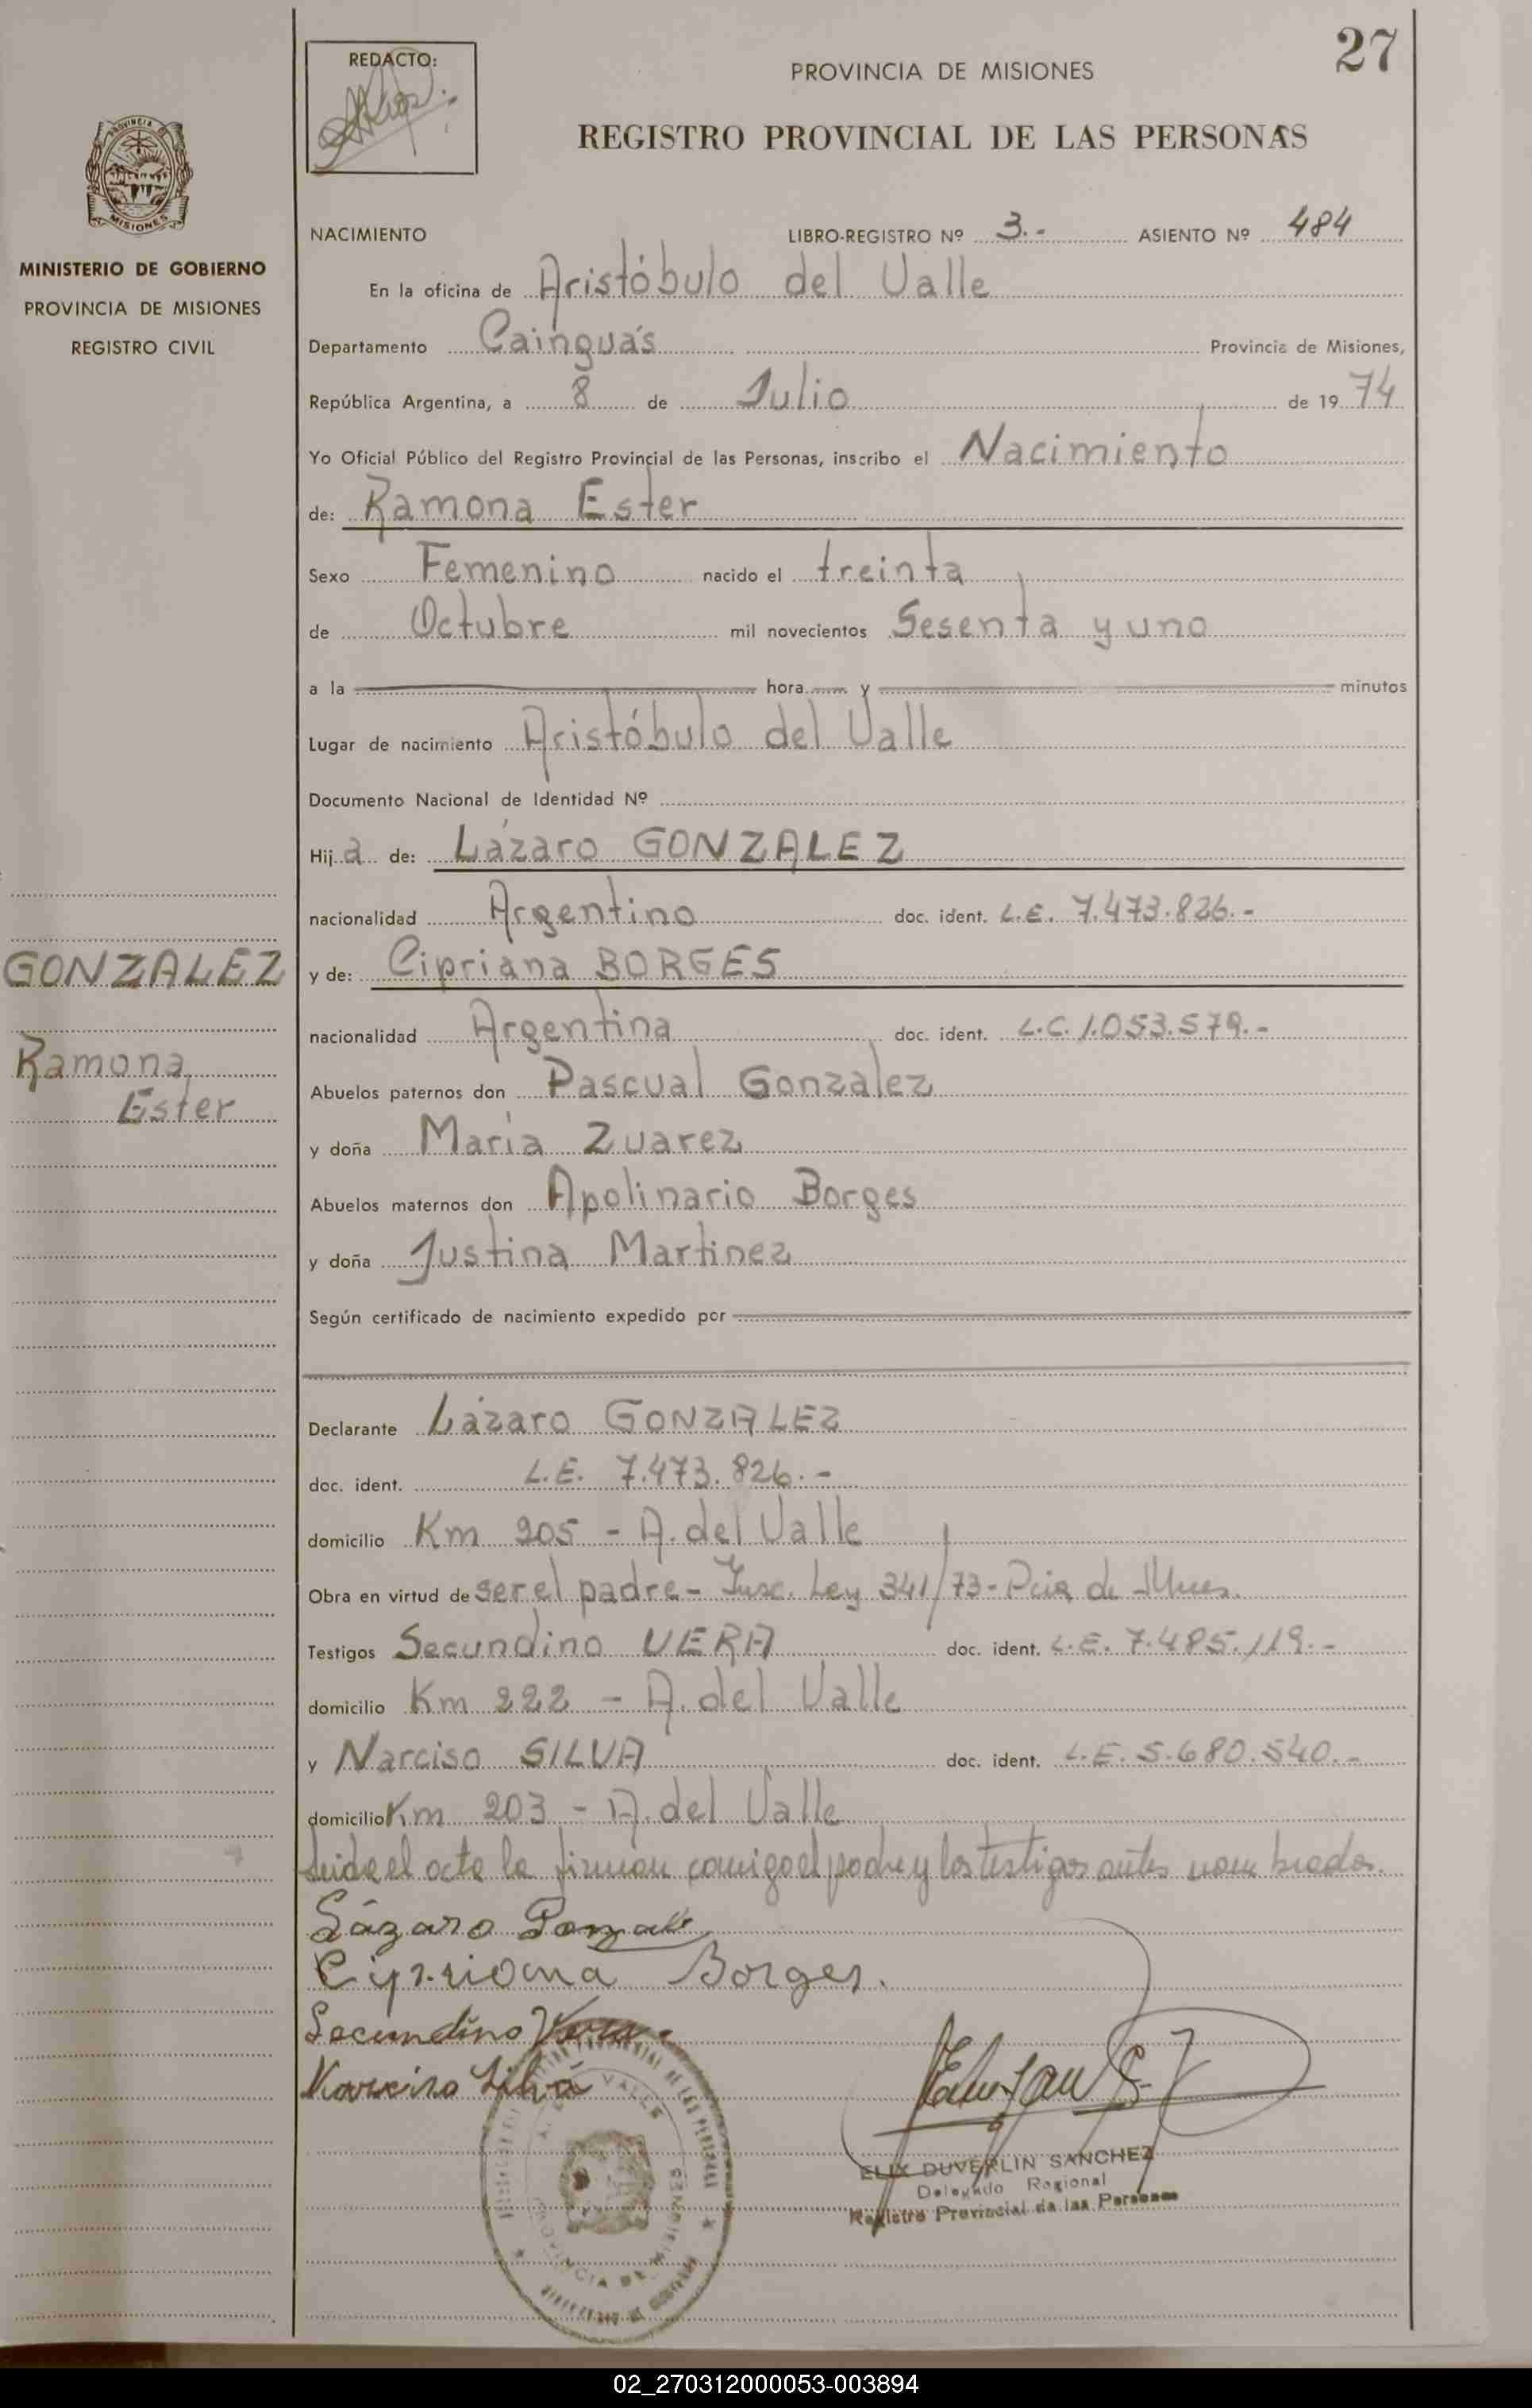 27
REDACTO:
PROVINCIA DE MISIONES
REGISTRO PROVINCIAL DE LAS PERSONAS
PROVINCIA DE
MISIONES
MINISTERIO DE GOBIERNO
PROVINCIA DE MISIONES
REGISTRO CIVIL
NACIMIENTO LIBRO-REGISTRO Nº 3.- ASIENTO Nº 484
En la oficina de Aristóbulo del Valle
Departamento Cainguás Provincia de Misiones,
República Argentina, a 8 de Julio de 19 74
Yo Oficial Público del Registro Provincial de las Personas, inscribo el Nacimiento
de: Ramona Ester
Sexo Femenino nacido el treinta
de Octubre mil novecientos Sesenta y uno
a la hora y minutos
Lugar de nacimiento Aristóbulo del Valle
Documento Nacional de Identidad Nº
Hij a de: Lázaro GONZALEZ
nacionalidad Argentino doc. ident. L.E. 7.473.826.-
GONZALEZ
y de: Cipriana BORGES
nacionalidad Argentina doc. ident. L.C. 1.053.579.-
Ramona
Ester
Abuelos paternos don Pascual Gonzalez
y doña María Zuarez
Abuelos maternos don Apolinario Borges
y doña Justina Martinez
Según certificado de nacimiento expedido por
Declarante Lázaro GONZALEZ
doc. ident. L.E. 7.473.826.-
domicilio Km 205 - A. del Valle
Obra en virtud de ser el padre - Insc. Ley 341/73 - Pcia de Mnes.
Testigos Secundino VERA doc. ident. L.E. 7.485.119.-
domicilio Km 222 - A. del Valle
y Narciso SILVA doc. ident. L.E. 5.680.540.-
domicilio Km 203 - A. del Valle
Leida el acta la firman conmigo el padre y los testigos antes nombrados.
Lázaro Gonzale
Cipriana Borges.
Secundino Vera
Narciso Silva
ELIX DUVERLIN SANCHEZ
Delegado Regional
Registro Provincial de las Personas
PROVINCIA DE MISIONES
02_270312000053-003894